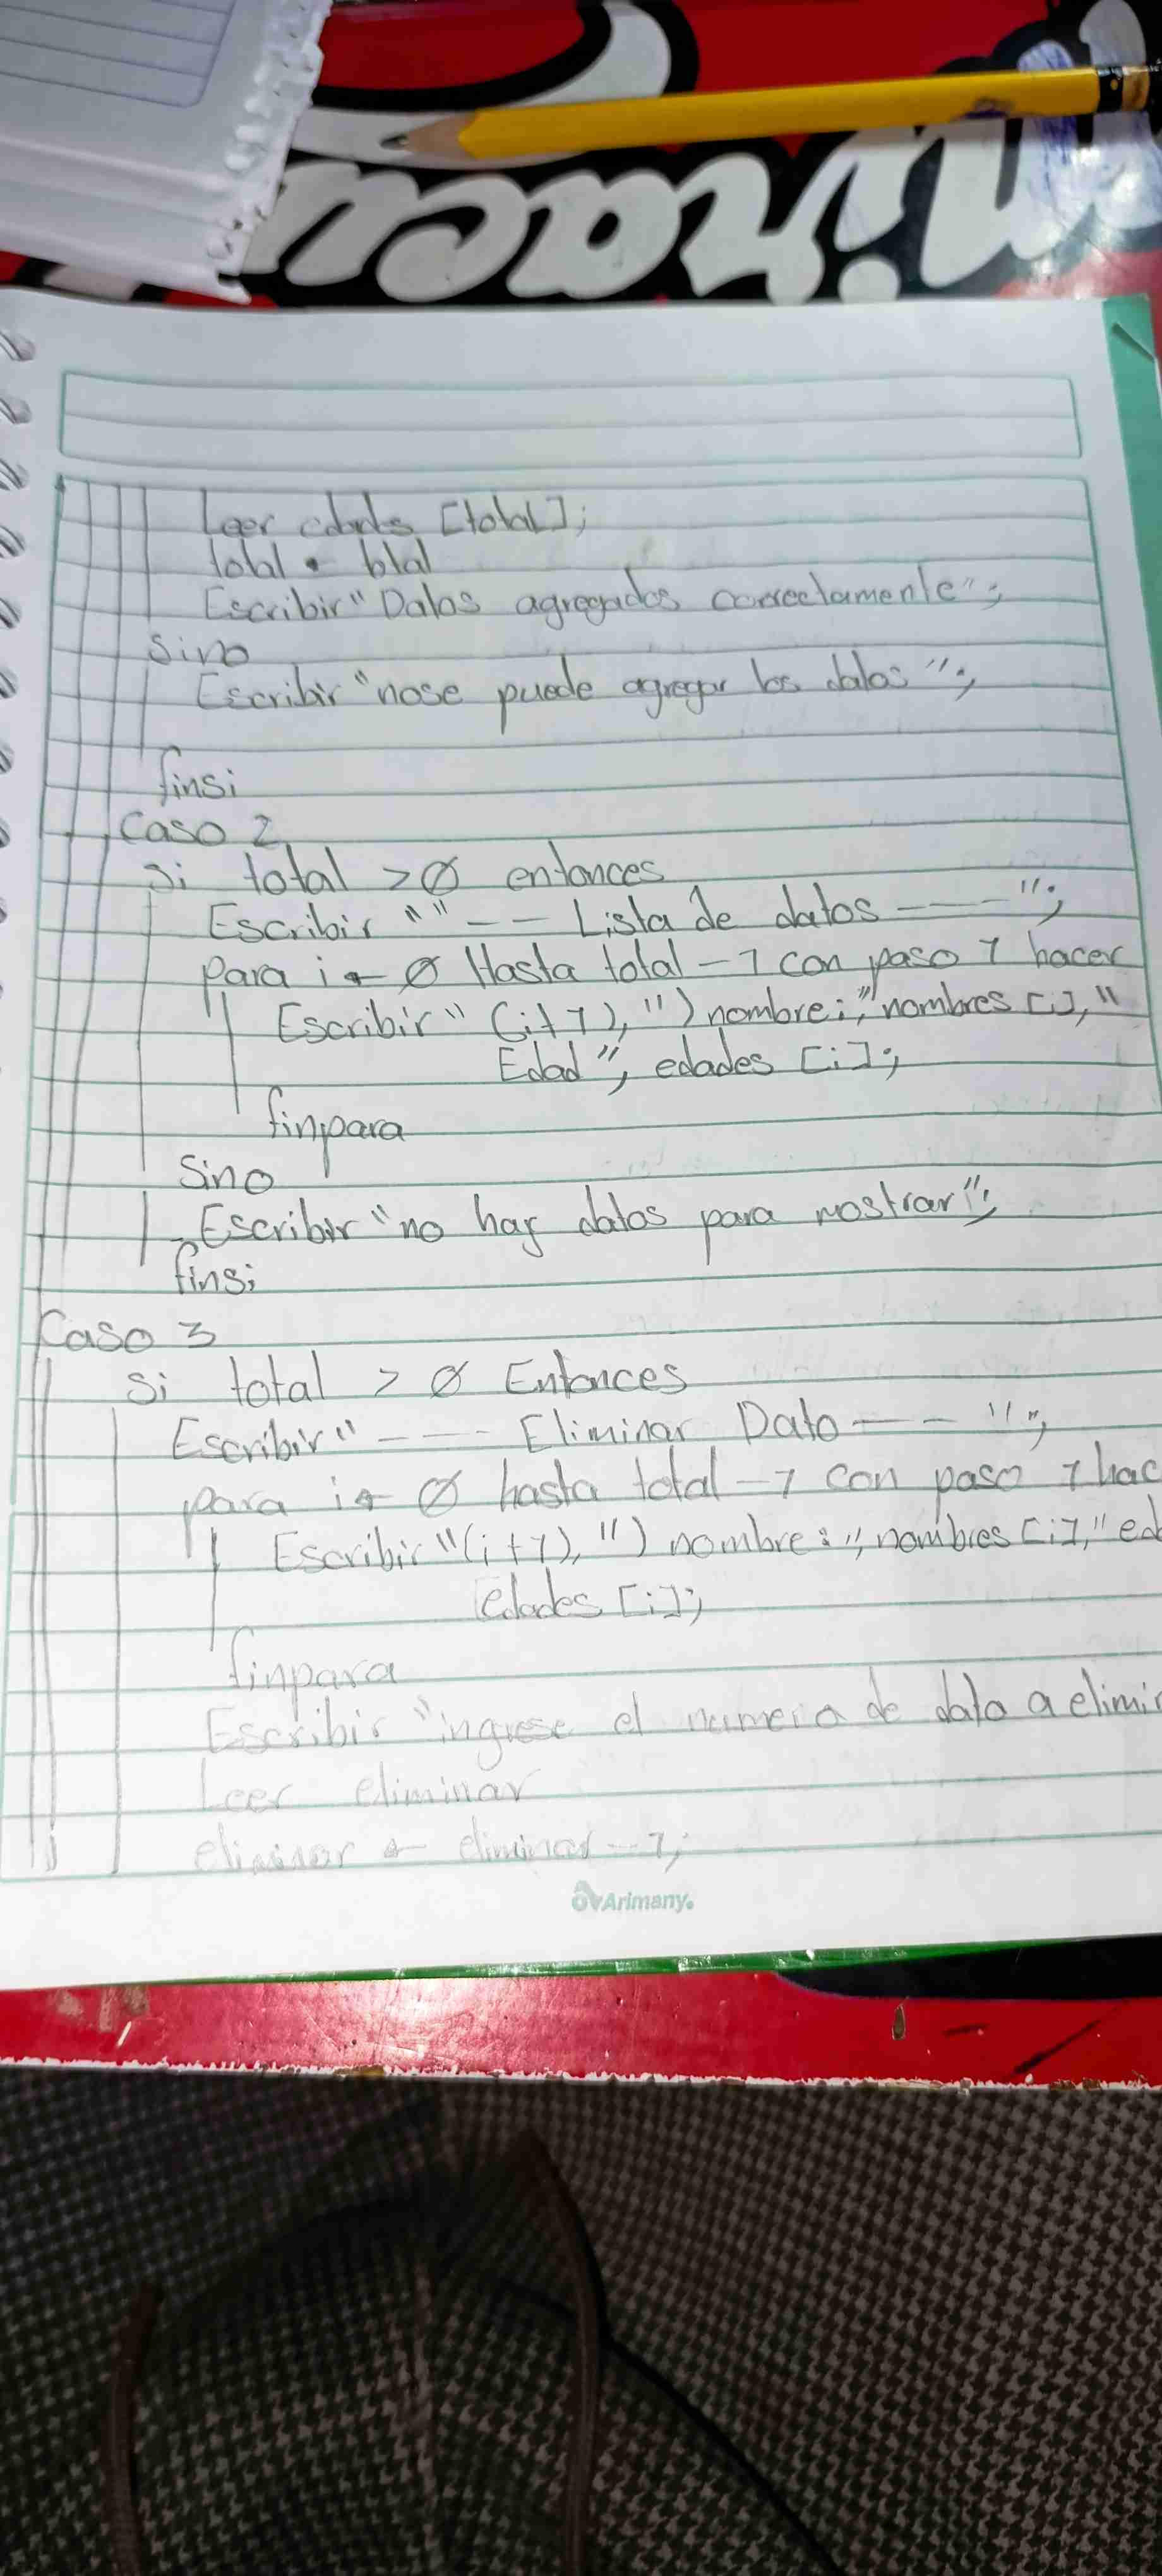 Leer edades [total];
total ← total
Escribir "Datos agregados correctamente";
Sino
Escribir "nose puede agregar los datos";
finsi
Caso 2
si total > 0 entonces
Escribir "" -- Lista de datos ----";
para i ← 0 Hasta total - 1 con paso 1 hacer
Escribir " (i+1), ") nombre:", nombres [i], "
Edad", edades [i];
finpara
Sino
Escribir "no hay datos para mostrar";
finsi
Caso 3
si total > 0 Entonces
Escribir" ---- Eliminar Dato -- ";
para i ← 0 hasta total - 1 con paso 1 hac
Escribir "(i+1), ") nombre:", nombres [i], " ed
edades [i];
finpara
Escribir "ingrese el numero de dato a elimi
Leer eliminar
eliminar ← eliminar - 1;
Arimany.